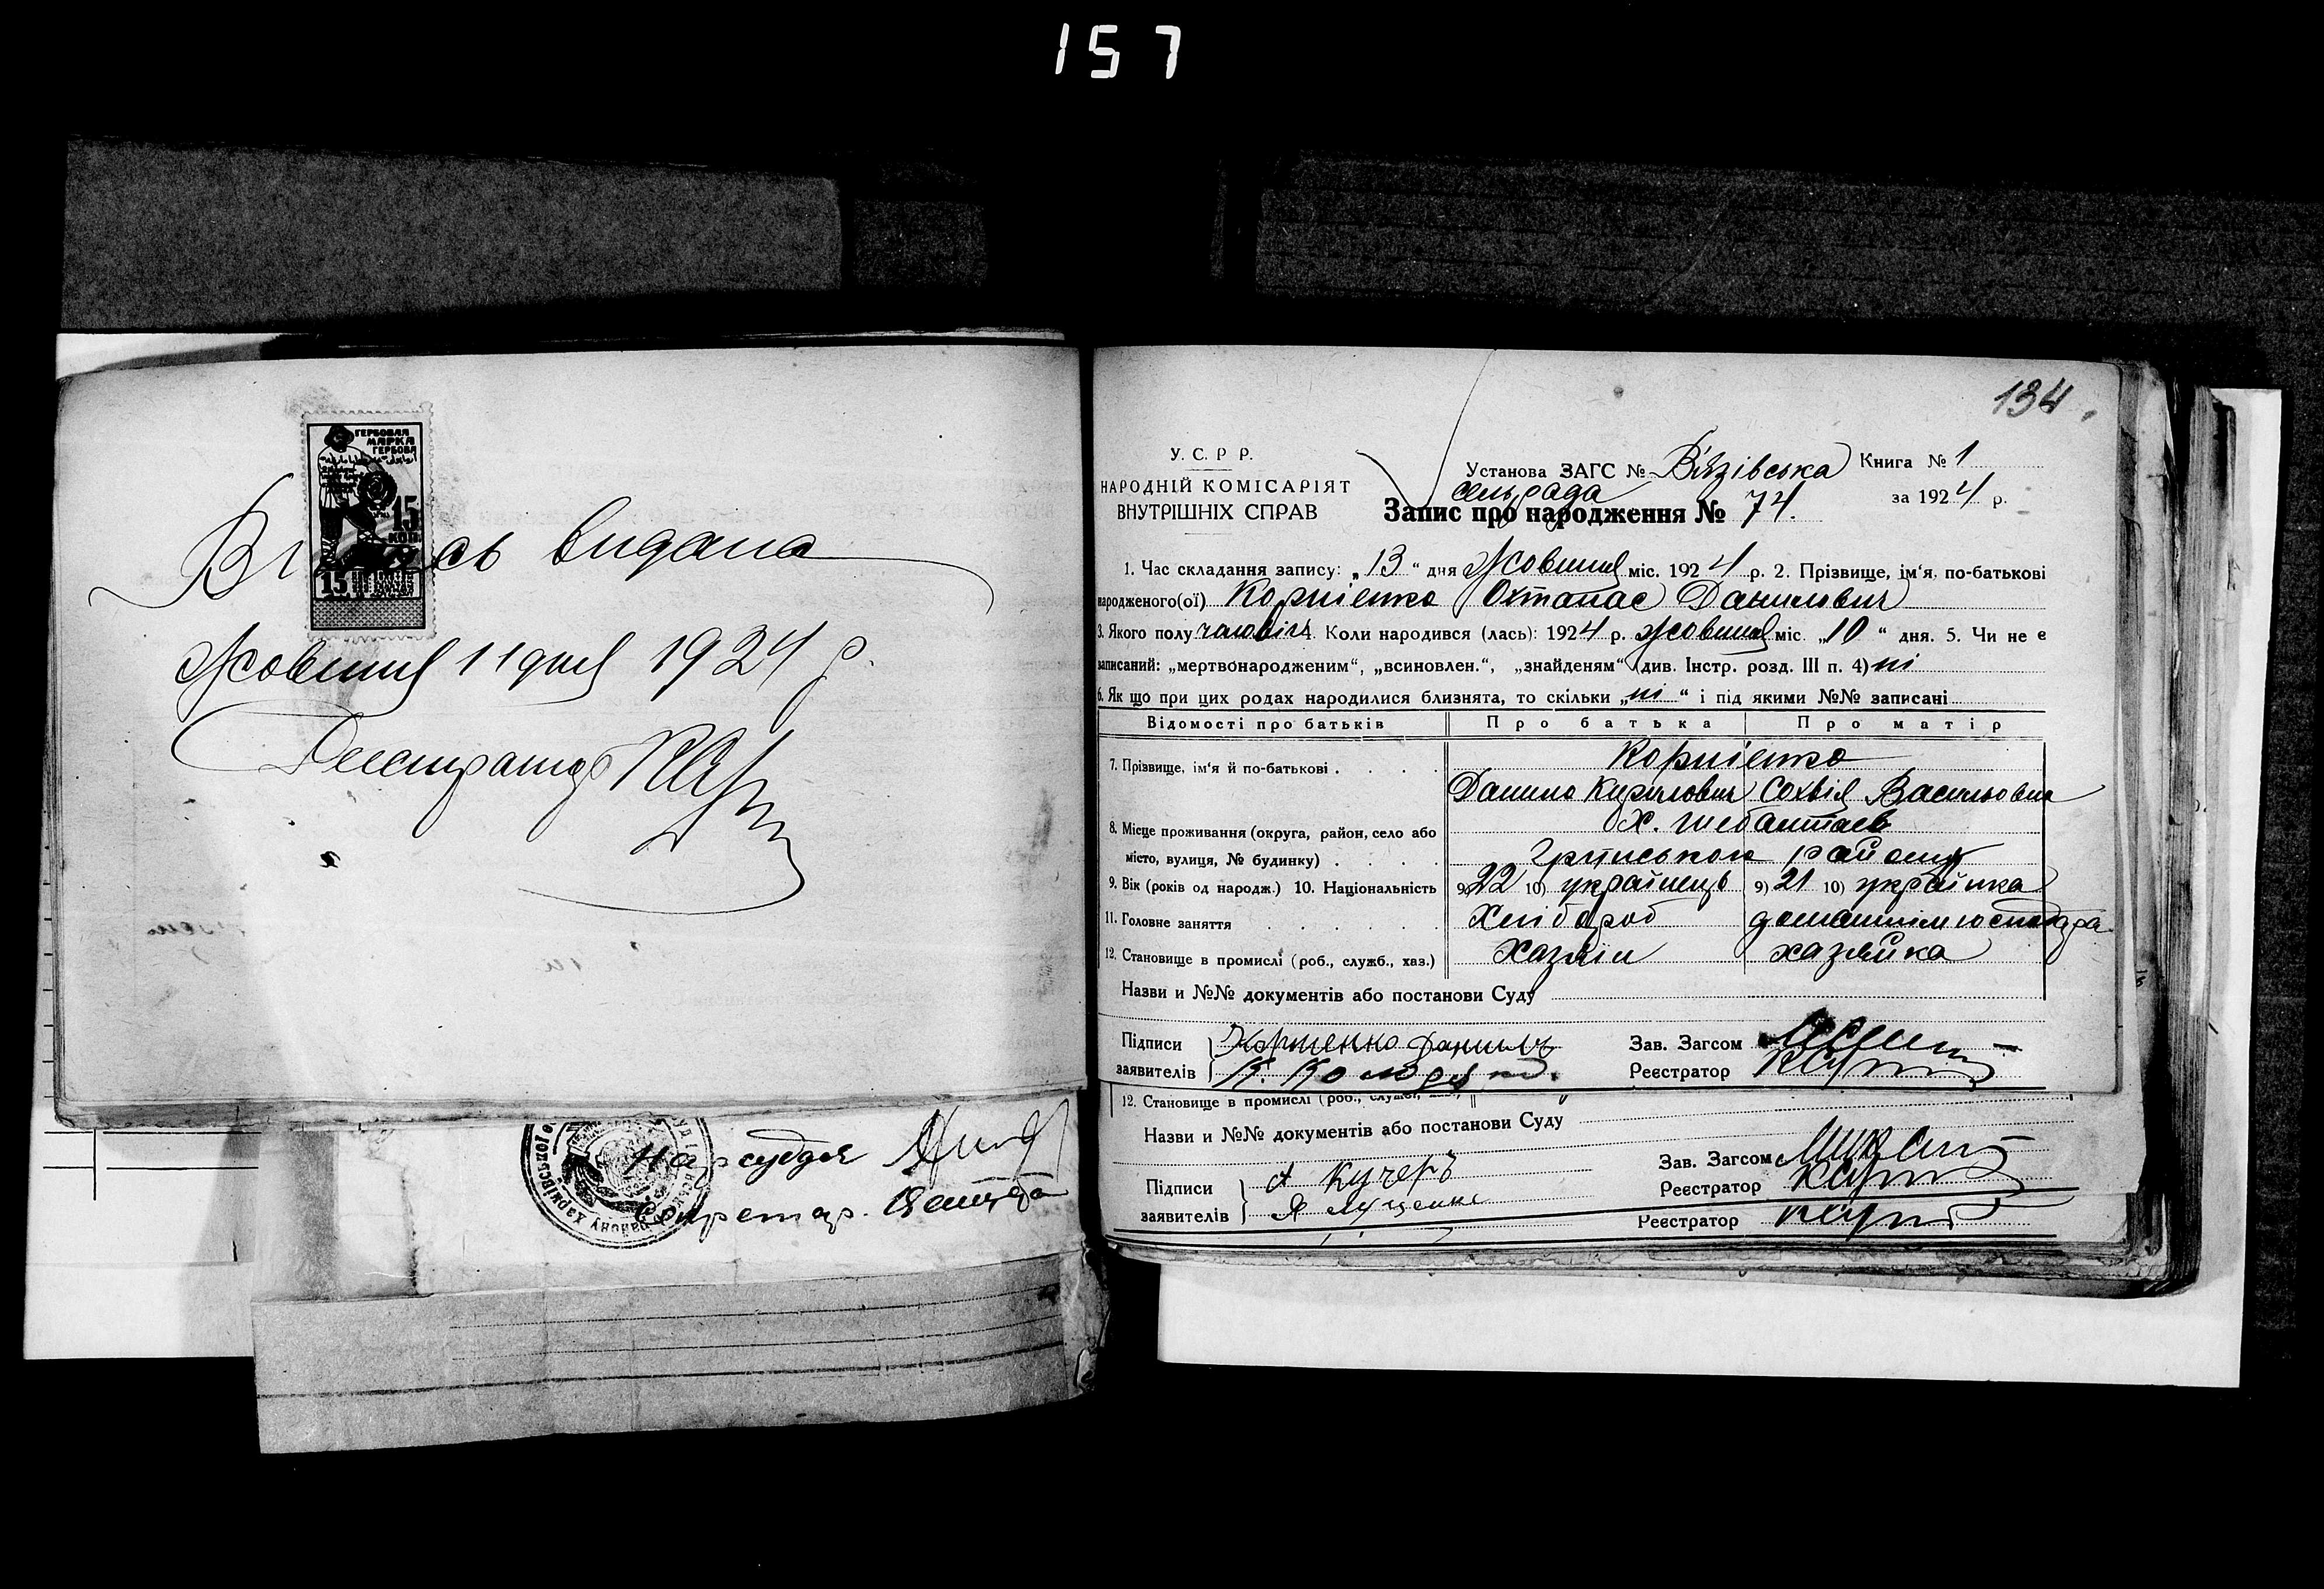 157
ГЕРБОВАЯ
МАРКА
ГЕРБОВА
15
КОП.
15
видана
Жовтня 11 дня 1924 р.
Реєстратор
Нарсуддя
Секретар.
134.
У. С. Р Р.
НАРОДНІЙ КОМІСАРІЯТ
ВНУТРІШНІХ СПРАВ
Установа ЗАГС № Вязівська Книга № 1
сельрада
за 1924 р.
Запис про народження № 74.
1. Час складання запису: „13“ дня Жовтня міс. 1924 р. 2. Прізвище, ім‘я, по-батькові
народженого(ої) Корнієнко Охтанас Данилович
3. Якого полу чоловіч 4. Коли народився (лась): 1924 р. жовтня міс. „10“ дня. 5. Чи не є
записаний: „мертвонародженим“, „всиновлен.“, „знайденям“ (див. Інстр. розд. III п. 4) ні
6. Як що при цих родах народилися близнята, то скільки „ні“ і під якими №№ записані
Відомості про батьків Про батька Про матір
7. Прізвище, ім‘я й по-батькові Корнієнко
Данило Кирилович Сохвія Васильовна
8. Місце проживання (округа, район, село або
місто, вулиця, № будинку)
х.
району
9. Вік (років од народж.) 10. Національність 9) 22 10) українець 9) 21 10) українка
11. Головне заняття Хлібороб
12. Становище в промислі (роб., служб., хаз.) Хазяін хазяйка
Назви и №№ документів або постанови Суду
Підписи
заявителів
Корниенко Данилъ
К.
Зав. Загсом
Реєстратор
12. Становище в промислі (роб., служб.,
Назви и №№ документів або постанови Суду
Підписи
заявителів
А Кучеръ
Я Луценко
Зав. Загсом
Реєстратор
Реєстратор